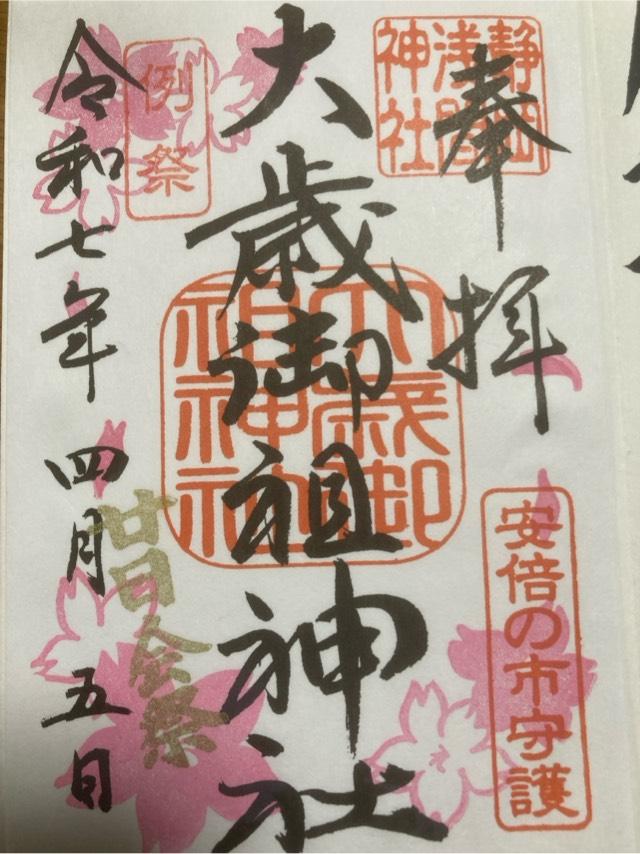 奉拝
静岡
浅間
神社
安倍の市守護
大歳御祖神社
大歳御
祖神社
例祭
廿日会祭
令和七年四月五日